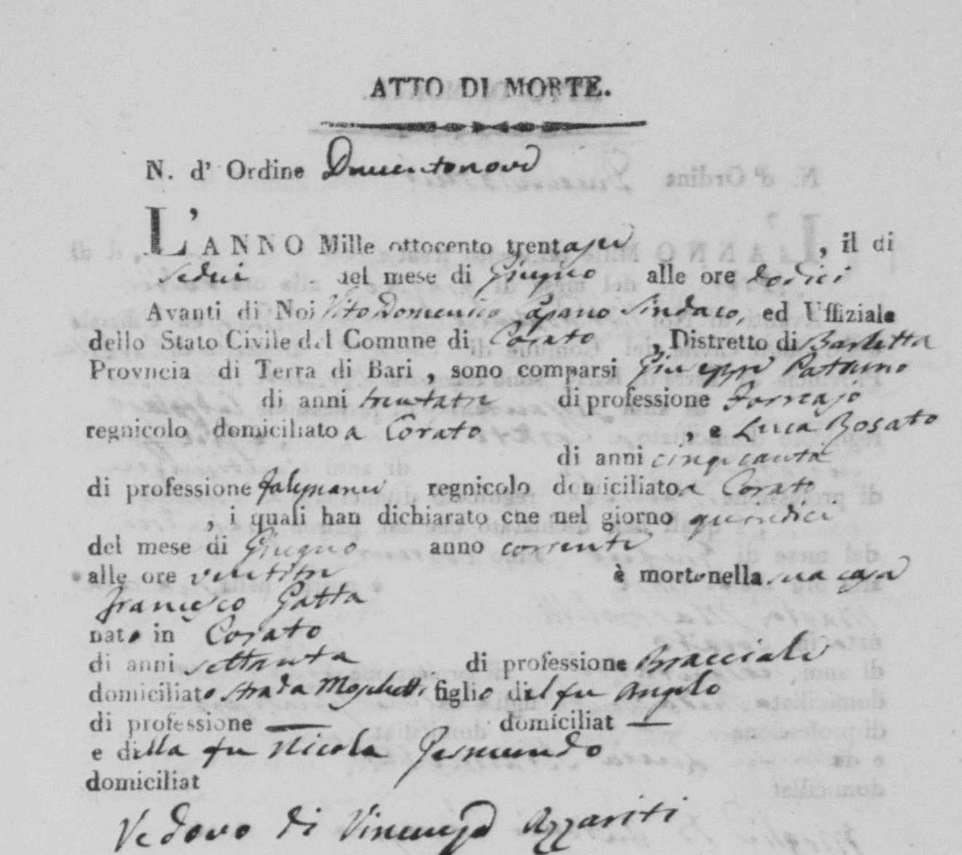 ATTO DI MORTE.
N. d' Ordine Duecentonove
L'ANNO Mille ottocento trentasei, il di
sedici del mese di Giugno alle ore dodici
Avanti di Noi Vito Domenico Capano Sindaco, ed Uffiziale
dello Stato Civile del Comune di Corato, Distretto di Barletta
Provncia di Terra di Bari, sono comparsi Giuseppe Paturno
di anni trentatre di professione Fornajo
regnicolo domiciliato a Corato, e Luca Rosato
di anni cinquanta
di professione Falegname regnicolo domiciliato a Corato
, i quali han dichiarato che nel giorno quindici
del mese di Giugno anno corrente
alle ore ventitre è morto nella sua casa
Francesco Gatta
nato in Corato
di anni settanta di professione Bracciale
domiciliato strada figlio del fu Angelo
di professione — domiciliat —
e della fu Nicola Gesmundo
domiciliat
Vedovo di Vincenza Azzariti